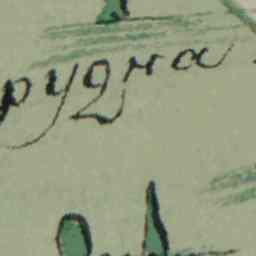 рудна